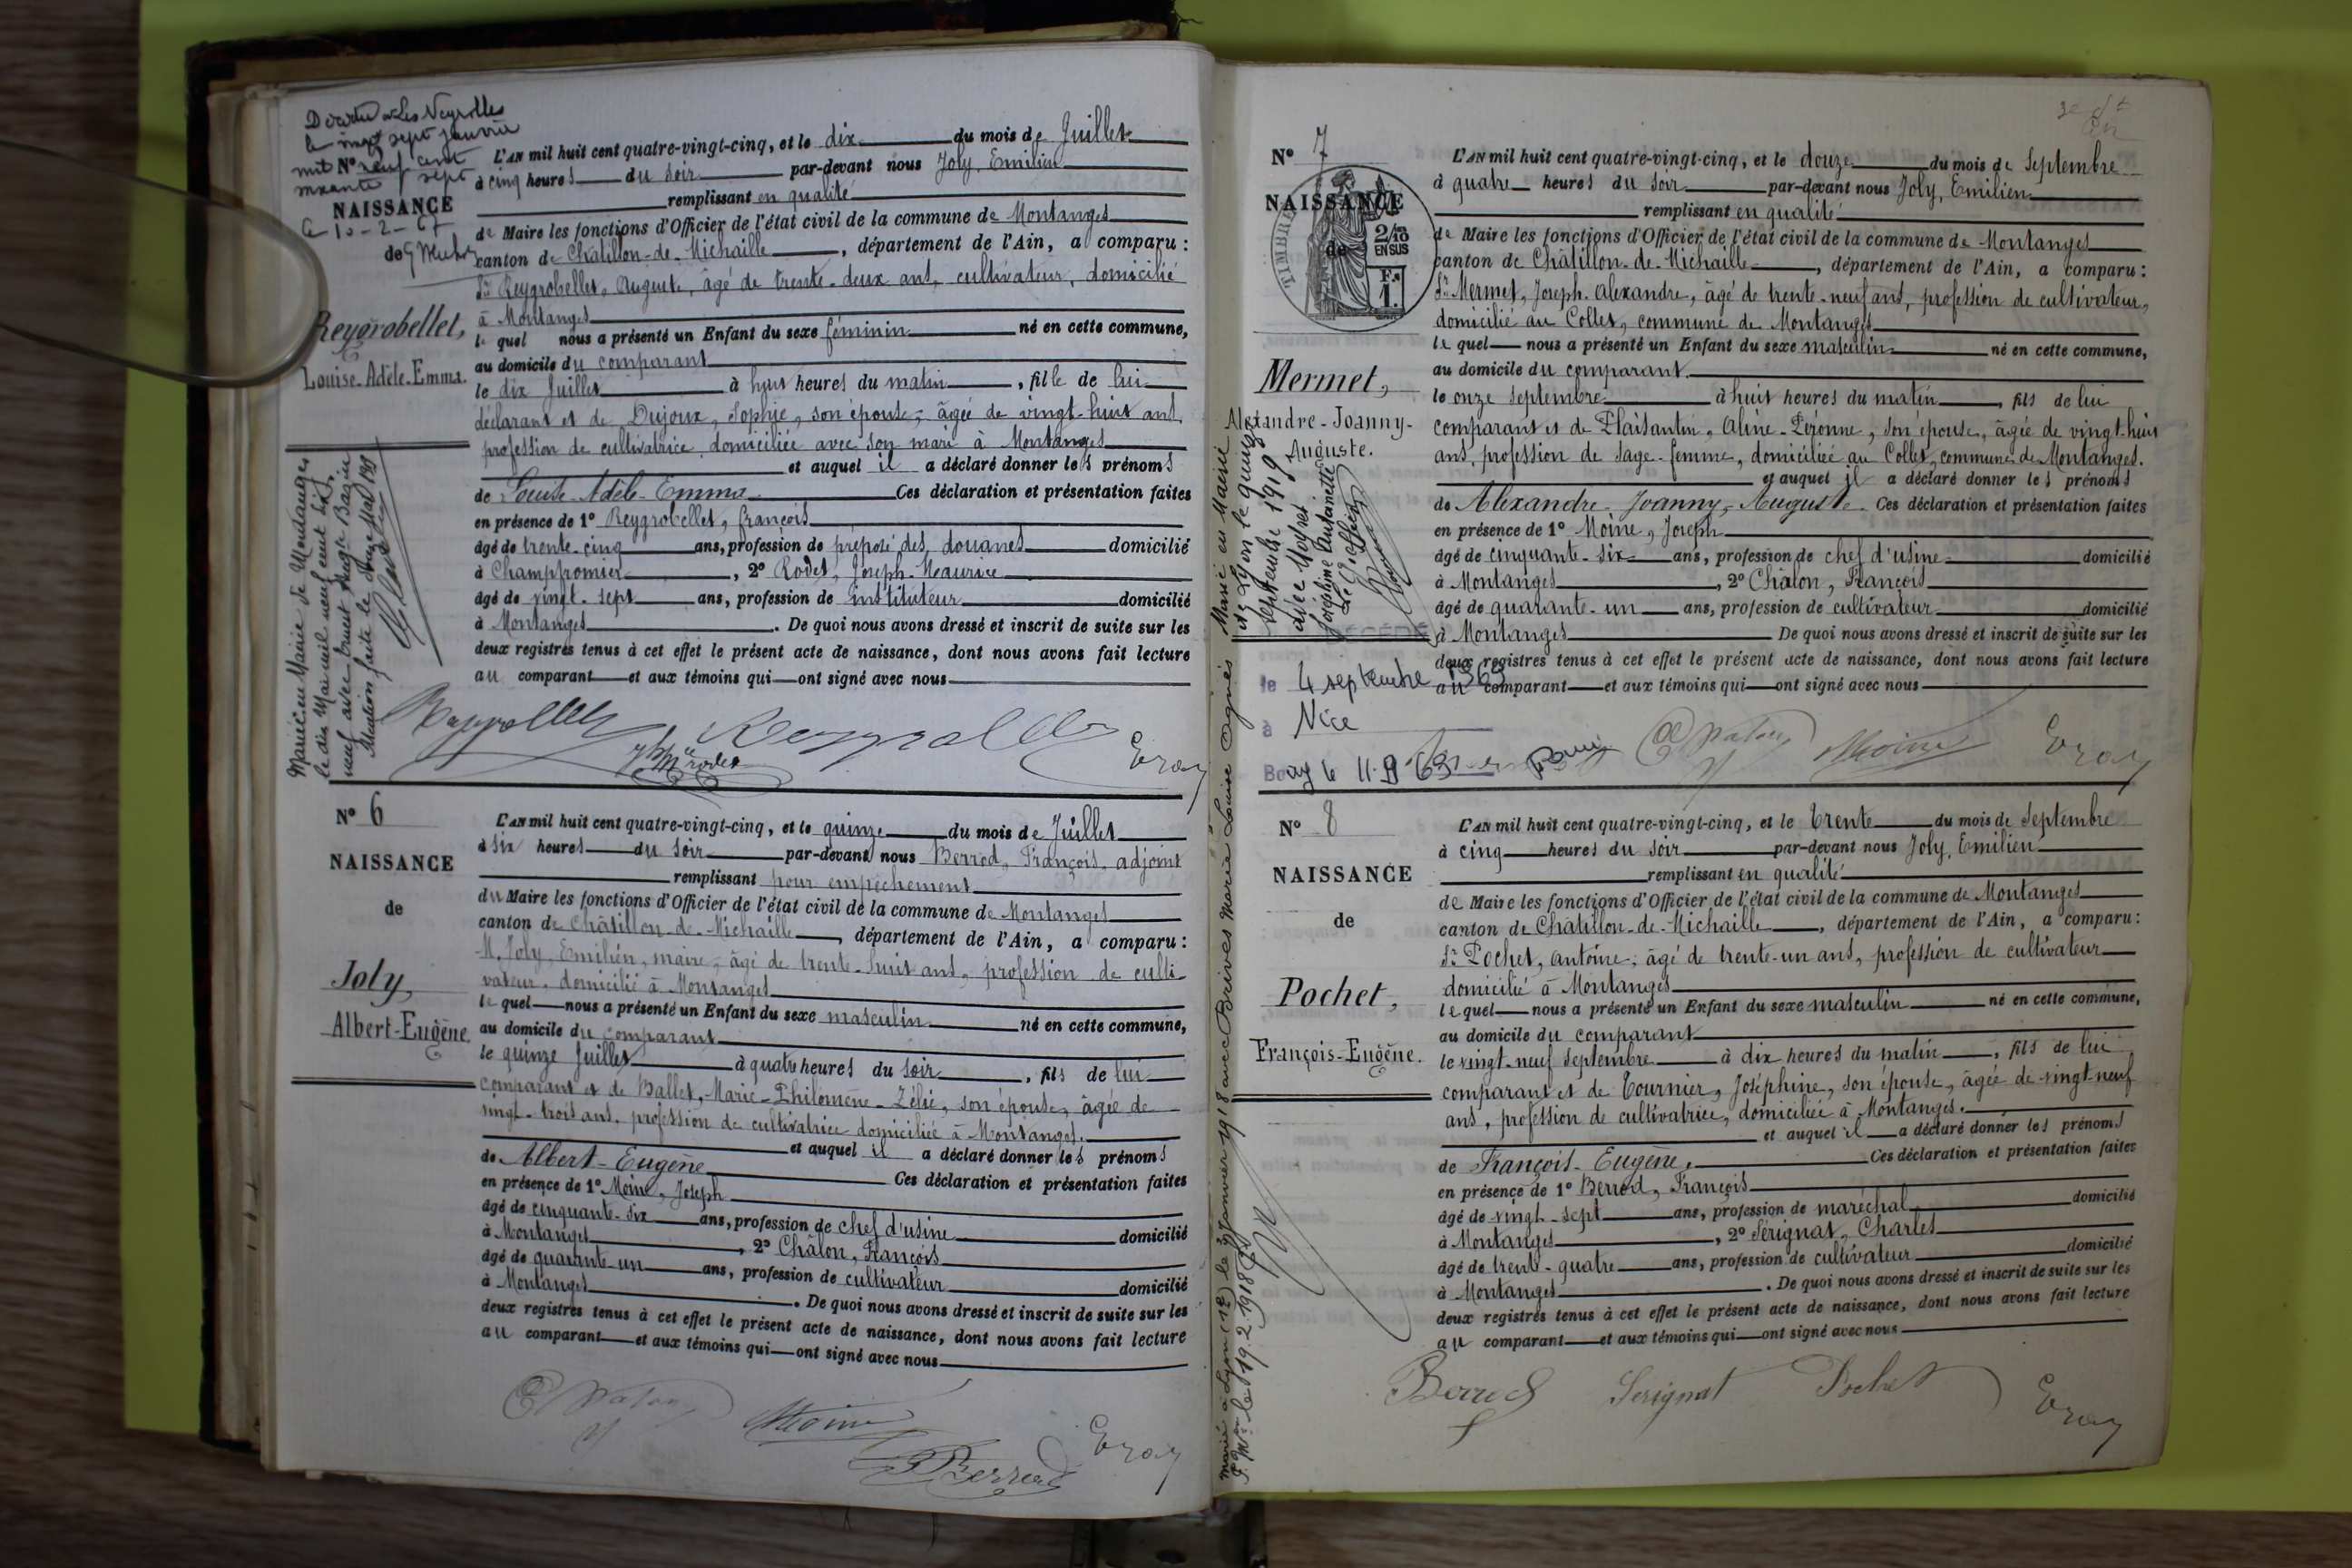 Les Neyrolles
le vingt sept janvier
mil neuf cent
soixante sept
NAISSANCE
Le 10-2-67
de
Reygrobellet,
Louise-Adèle-Emma.
Mariée en Mairie de Montanges
le dix Mai mil neuf cent
neuf avec
Mention faite le
L'AN mil huit cent quatre-vingt-cinq, et le dix du mois de Juillet
à cinq heures du soir par-devant nous Joly, Emilien
remplissant en qualité
de Maire les fonctions d'Officier de l'état civil de la commune de Montanges
canton de Châtillon-de-Michaille, département de l'Ain, a comparu :
Sr Reygrobellet, Auguste, âgé de trente-deux ans, cultivateur, domicilié
à Montanges
lequel nous a présenté un Enfant du sexe féminin né en cette commune,
au domicile du comparant
le dix Juillet à huit heures du matin, fille de lui
déclarant et de Dujoux, Sophie, son épouse, âgée de vingt-huit ans,
profession de cultivatrice domiciliée avec son mari à Montanges
et auquel il a déclaré donner les prénoms
de Louise-Adèle-Emma Ces déclaration et présentation faites
en présence de 1º Reygrobellet, françois
âgé de trente-cinq ans, profession de préposé des douanes domicilié
à Champfromier, 2º Rodet, Joseph-Maurice
âgé de vingt-sept ans, profession de instituteur domicilié
à Montanges. De quoi nous avons dressé et inscrit de suite sur les
deux registres tenus à cet effet le présent acte de naissance, dont nous avons fait lecture
au comparant et aux témoins qui ont signé avec nous
Nº 6
NAISSANCE
de
Joly,
Albert-Eugène.
L'AN mil huit cent quatre-vingt-cinq, et le quinze du mois de Juillet
à six heures du soir par-devant nous Berrod, François, adjoint
remplissant pour empêchement
du Maire les fonctions d'Officier de l'état civil de la commune de Montanges
canton de Châtillon-de-Michaille, département de l'Ain, a comparu :
M. Joly, Emilien, maire, âgé de trente-huit ans, profession de culti-
vateur, domicilié à Montanges
lequel nous a présenté un Enfant du sexe masculin né en cette commune,
au domicile du comparant
le quinze Juillet à quatre heures du soir, fils de lui
comparant et de Ballet, Marie-Philomène-Zélie, son épouse, âgée de
vingt-trois ans, profession de cultivatrice domiciliée à Montanges.
et auquel il a déclaré donner les prénoms
de Albert-Eugène Ces déclaration et présentation faites
en présence de 1º Moine, Joseph
âgé de cinquante-six ans, profession de chef d'usine domicilié
à Montanges, 2º Châlon, François
âgé de quarante-un ans, profession de cultivateur domicilié
à Montanges. De quoi nous avons dressé et inscrit de suite sur les
deux registres tenus à cet effet le présent acte de naissance, dont nous avons fait lecture
au comparant et aux témoins qui ont signé avec nous
Moine
Berrod
Nº 7
NAISSANCE
de
TIMBRE
2/10
EN SUS
1F
Mermet,
Alexandre-Joanny-
Auguste.
Marié en Mairie
de Lyon le quinze
septembre 1919
avec
Joséphine Antoinette
Le Greffier
DÉCÉDÉ
le 4 septembre 1963
à Nice
le 11-9-63
L'AN mil huit cent quatre-vingt-cinq, et le douze du mois de Septembre
à quatre heures du soir par-devant nous Joly, Emilien
remplissant en qualité
de Maire les fonctions d'Officier de l'état civil de la commune de Montanges
canton de Châtillon-de-Michaille, département de l'Ain, a comparu :
Sr Mermet, Joseph-Alexandre, âgé de trente-neuf ans, profession de cultivateur,
domicilié au Collet, commune de Montanges
lequel nous a présenté un Enfant du sexe masculin né en cette commune,
au domicile du comparant.
le onze septembre à huit heures du matin, fils de lui
comparant et de Plaisantin, Aline-Péronne, son épouse, âgée de vingt-huit
ans, profession de sage-femme, domiciliée au Collet, commune de Montanges.
et auquel il a déclaré donner les prénoms
de Alexandre-Joanny-Auguste. Ces déclaration et présentation faites
en présence de 1º Moine, Joseph
âgé de cinquante-six ans, profession de chef d'usine domicilié
à Montanges, 2º Châlon, François
âgé de quarante-un ans, profession de cultivateur domicilié
à Montanges De quoi nous avons dressé et inscrit de suite sur les
deux registres tenus à cet effet le présent acte de naissance, dont nous avons fait lecture
au comparant et aux témoins qui ont signé avec nous
Moine
Nº 8
NAISSANCE
de
Pochet,
François-Eugène.
Marié à Lyon (12) le 3 Janvier 1918 avec Brives Marie Louise Agnès
le 19.2.1918
L'AN mil huit cent quatre-vingt-cinq, et le trente du mois de Septembre
à cinq heures du soir par-devant nous Joly, Emilien
remplissant en qualité
de Maire les fonctions d'Officier de l'état civil de la commune de Montanges
canton de Châtillon-de-Michaille, département de l'Ain, a comparu :
Sr Pochet, Antoine, âgé de trente-un ans, profession de cultivateur
domicilié à Montanges
lequel nous a présenté un Enfant du sexe masculin né en cette commune,
au domicile du comparant
le vingt-neuf septembre à dix heures du matin, fils de lui
comparant et de Tournier, Joséphine, son épouse, âgée de vingt-neuf
ans, profession de cultivatrice, domiciliée à Montanges.
et auquel il a déclaré donner les prénoms
de François-Eugène. Ces déclaration et présentation faites
en présence de 1º Berrod, François
âgé de vingt-sept ans, profession de maréchal domicilié
à Montanges, 2º Sérignat, Charles
âgé de trente-quatre ans, profession de cultivateur domicilié
à Montanges. De quoi nous avons dressé et inscrit de suite sur les
deux registres tenus à cet effet le présent acte de naissance, dont nous avons fait lecture
au comparant et aux témoins qui ont signé avec nous
Berrod Serignat Pochet